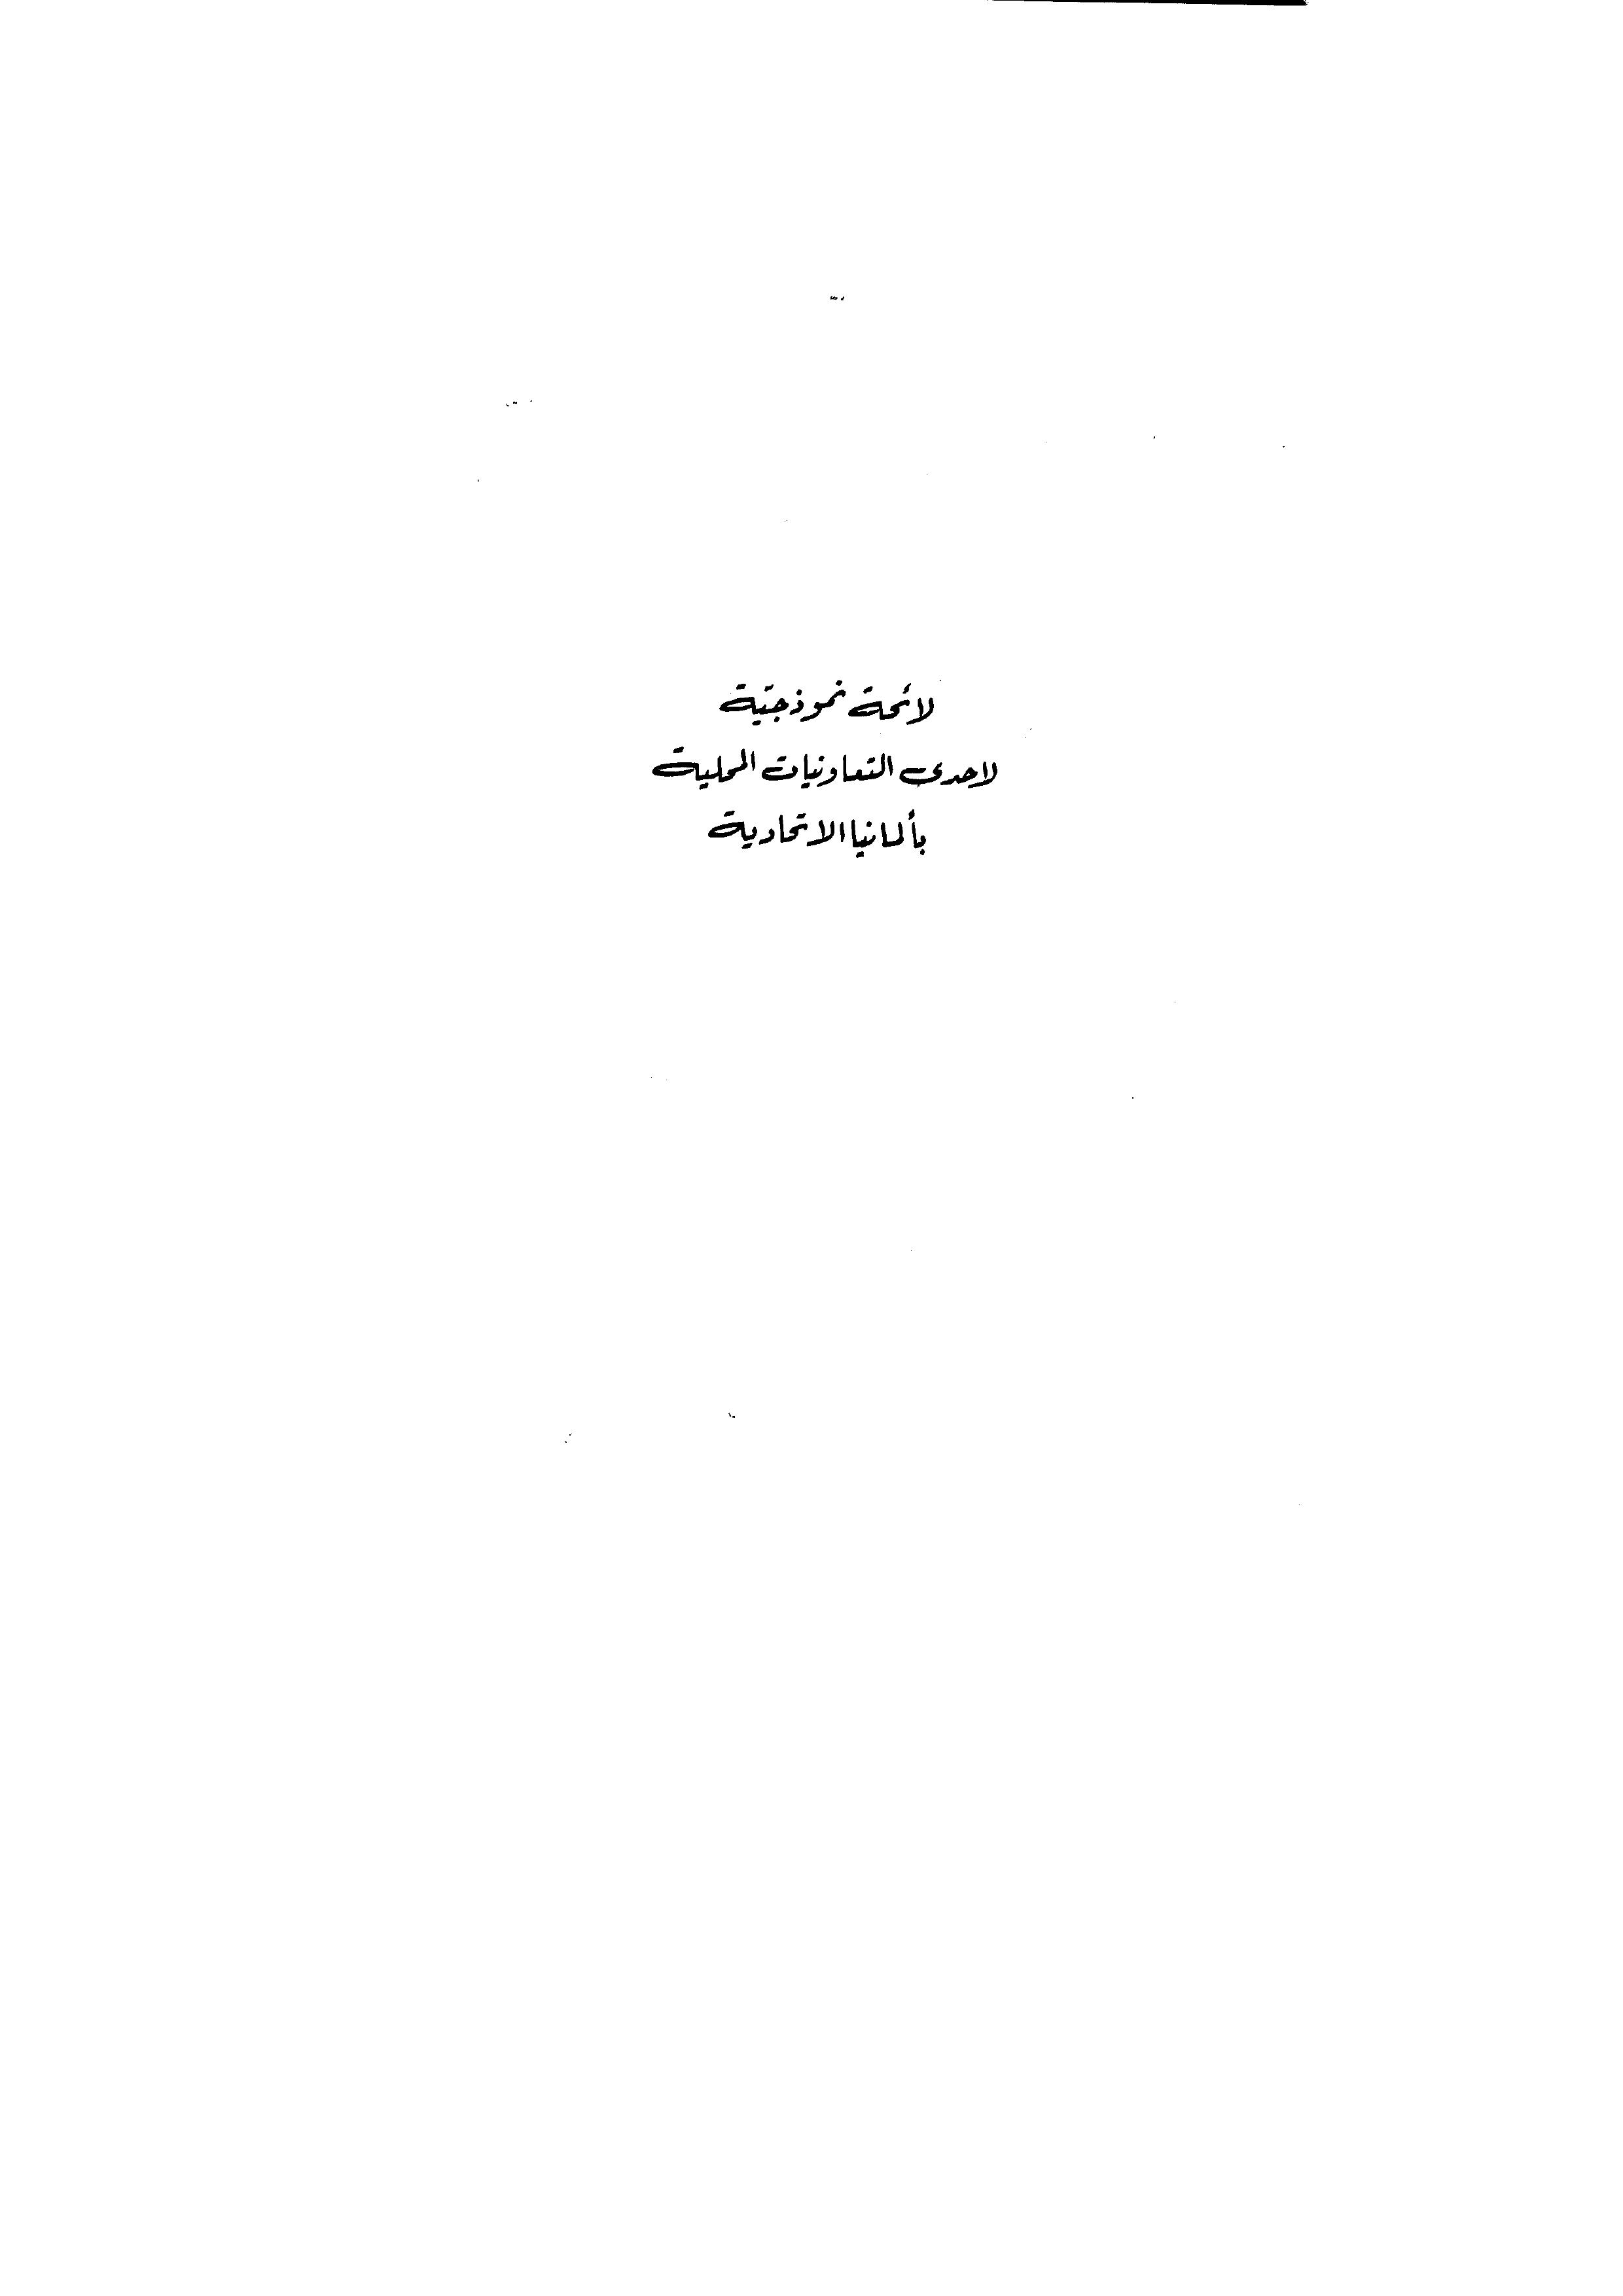 لائحة نموذجية
لاحدى التعاونيات المحلية
بألمانيا الاتحادية